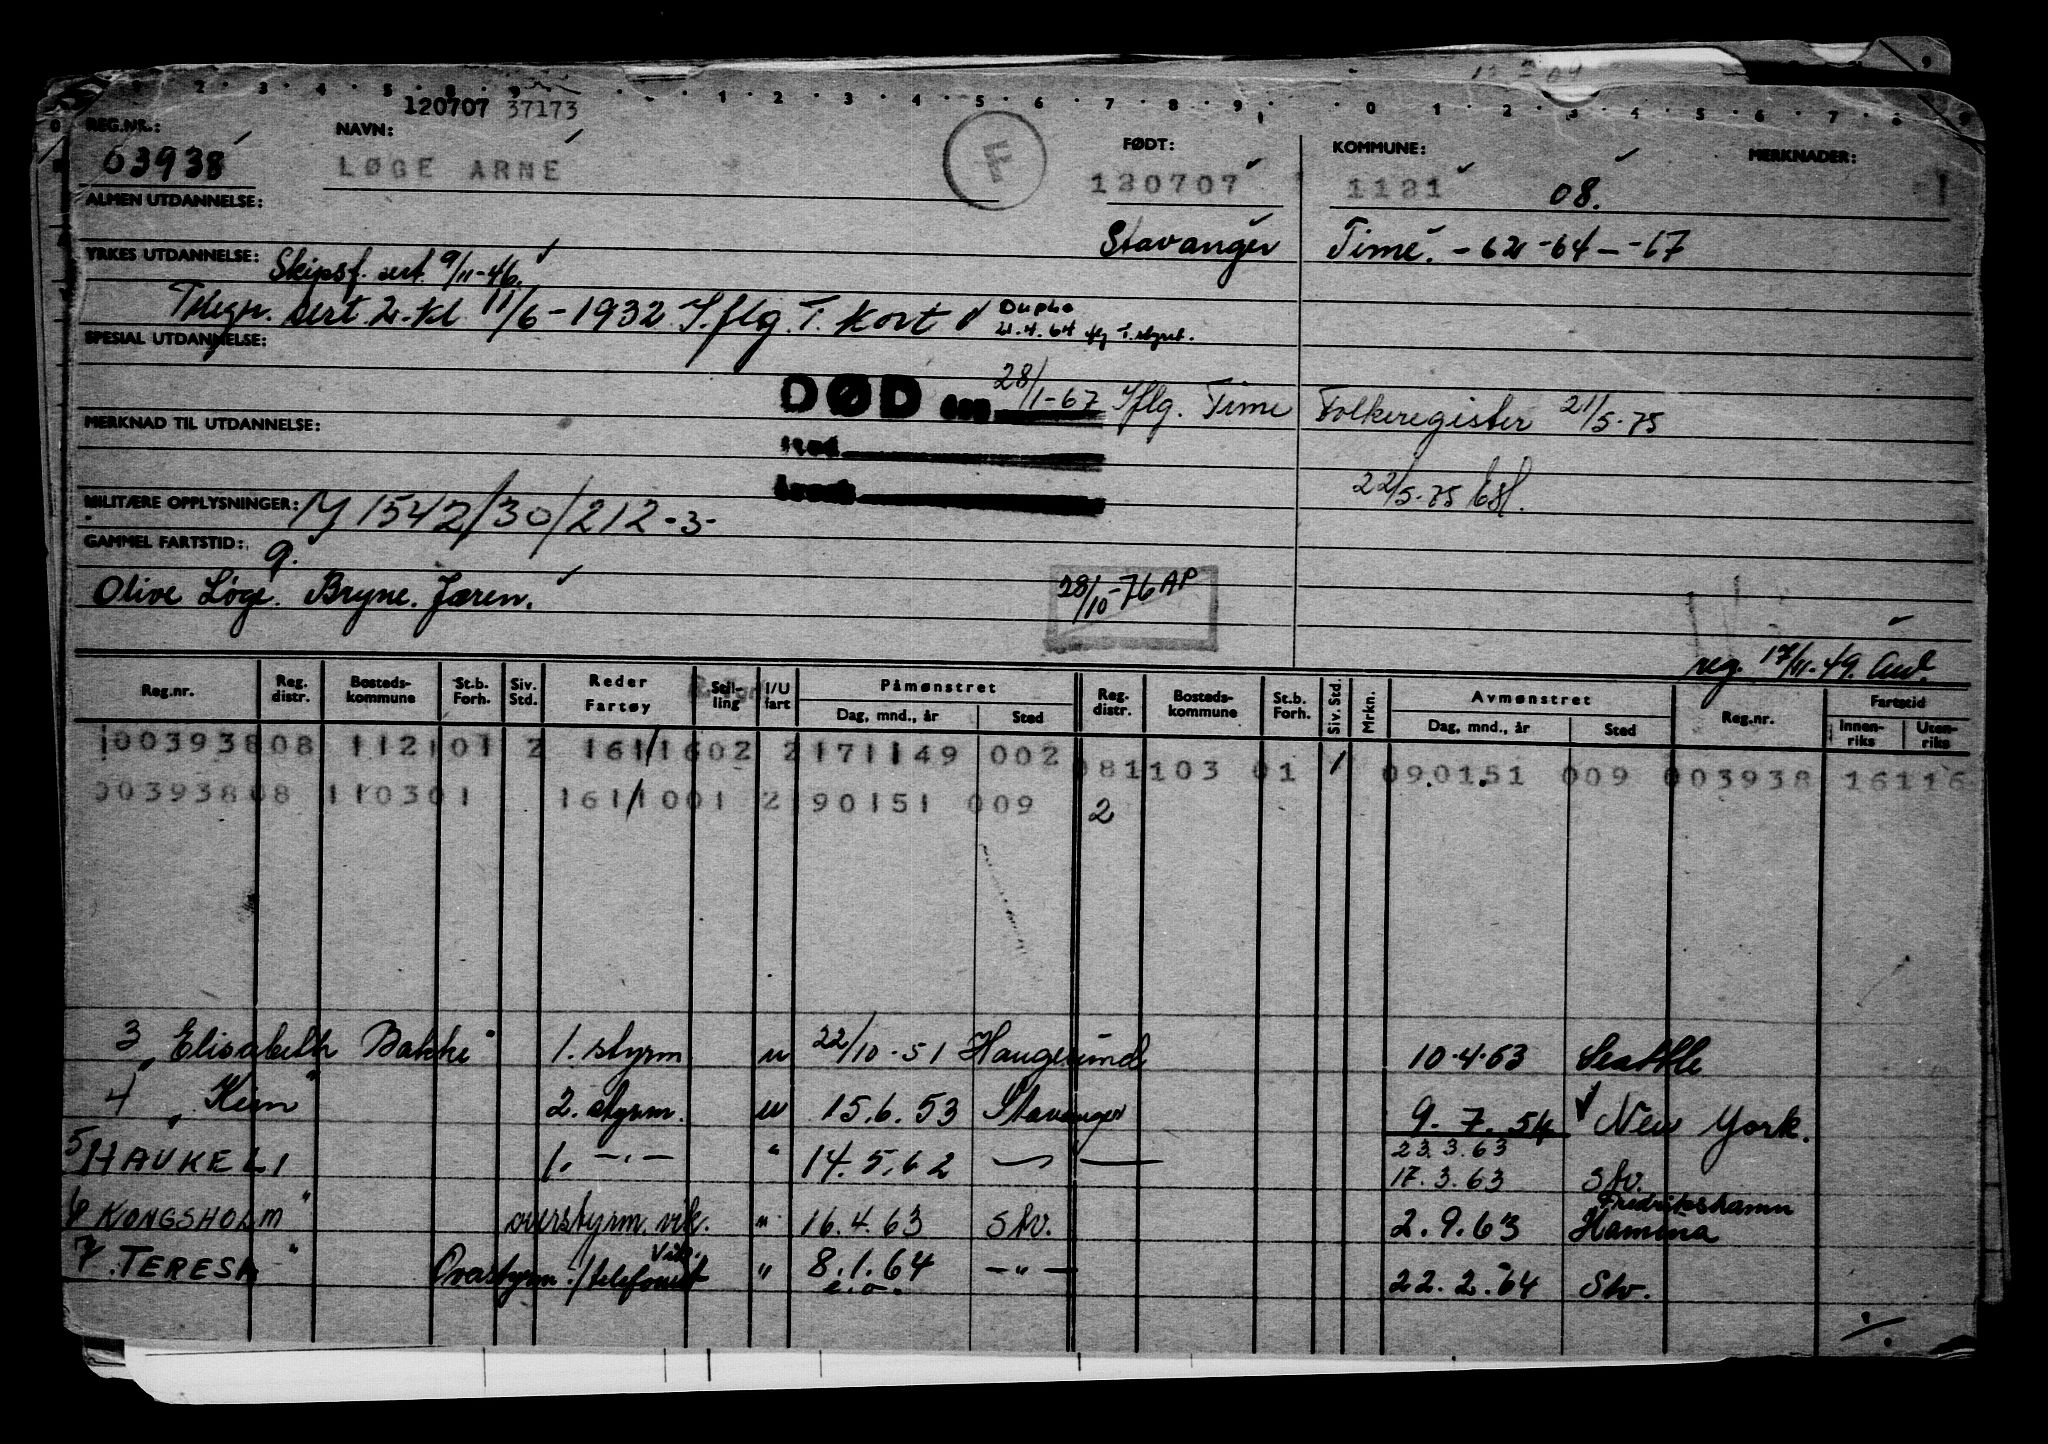 120707 37173
REG.NR.: NAVN: FØDT: KOMMUNE: MERKNADER:
63938 LØGE ARNE F 120707 1121 08.
ALMEN UTDANNELSE:
Stavanger Time. - 62 - 64 - - 67
YRKES UTDANNELSE: Skipsf. sert. 9/11-46.
Telegr. sert. 2. kl 11/6-1932 Iflg. T. kort Dupla
21.4.64 iflg T. styret.
SPESIAL UTDANNELSE:
DØD den 28/1-67 Iflg. Time Folkeregister 21/5-75
MERKNAD TIL UTDANNELSE:
sted
22/5-75
årsak
MILITÆRE OPPLYSNINGER: M 1542/30/212-3-
GAMMEL FARTSTID: g.
Olive Løge. Bryne. Jæren. 28/10-76 AP
reg. 17/11-49. And.
Reg.nr. Reg. distr. Bosteds- kommune St.b. Forh. Siv. Std. Reder Fartøy Stil- ling I/U fart Påmønstret Dag, mnd., år Sted Reg. distr. Bosteds- kommune St.b. Forh. Siv. Std. Mrkn. Avmønstret Dag, mnd., år Sted Reg.nr. Fartstid Innen- riks Uten- riks
003938 08 1121 01 2 1611 602 2 171149 002 08 1103 01 1 090151 009 003938 16116
003938 08 1103 01 1611 001 2 190151 009 2
3 "Elisabeth Bakke" 1. styrm u 22/10-51 Haugesund 10.4.53 Seattle
4 "Kim" 2. styrm. u 15.6.53 Stavanger 9.7.54 New York.
5 HAUKELI 1. -"- " 14.5.62 — " — 23.3.63
17.3.63 Stv.
6 KONGSHOLM" overstyrm. vik. " 16.4.63 Stv. 2.9.63 Fredrikshamn
Hamina
7. TERESA " Overstyrm./telefonist Vik. " 8.1.64 - " - 22.2.64 Stv.
e.o.
./.